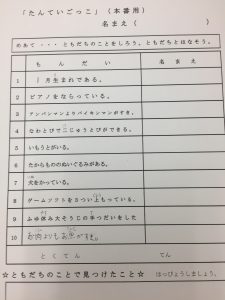 「たんていごっこ」(本番用)
名まえ( )
めあて・・・ともだちのことをしろう。ともだちとはなそう。
もんだい 名まえ
1 1月生まれである。
2 ピアノをならっている。
3 アンパンマンよりバイキンマンがすき。
4 なわとびで二じゅうとびができる。
5 いもうとがいる。
6 たからもののぬいぐるみがある。
7 犬をかっている。
8 ゲームソフトを3つい上もっている。
9 ふゆ休み大そうじの手つだいをした
10 お肉よりもお魚がすき。
とくてん てん
☆ともだちのことで見つけたこと☆ はっぴょうしましょう。